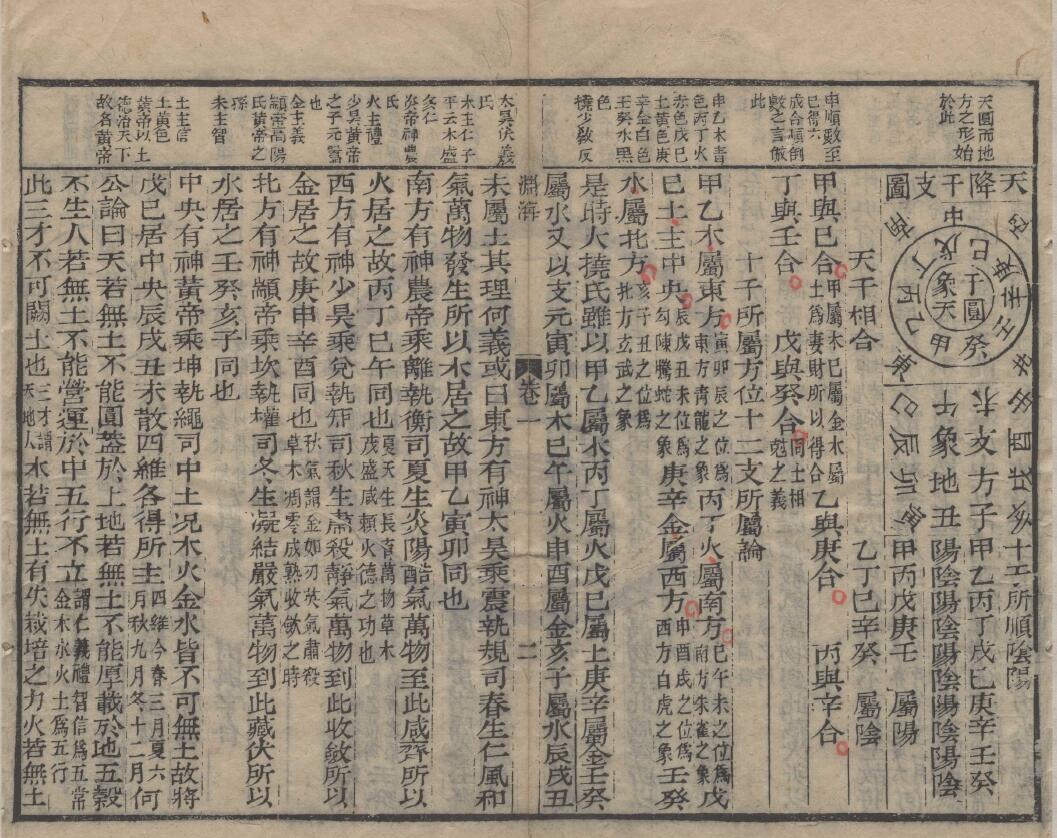 天圓而地
方之形始
於此
申順數至
巳得六
成合順倒
數之言倣
此
甲乙木青
色丙丁火
赤色戊巳
土黃色庚
辛金白色
壬癸水黑
色
撓少敎反
太昊伏義
氏
木主仁子
平云木盛
多仁
炎帝神農
氏
火主禮
少昊黃帝
之子元囂
也
金主義
顓帝高陽
氏黃帝之
孫
水主智
土主信
土黃色
黃帝以土
德治天下
故名黃帝
天降干支圖
中
戊巳
丙丁
南
甲乙
東
庚辛
壬癸
子圓象天
未支方子甲乙丙丁戊巳庚辛壬癸
午象地丑陽陰陽陰陽陰陽陰陽陰
申酉戌亥十干所順陰陽
巳辰卯寅甲丙戊庚壬 屬陽
乙丁巳辛癸 屬陰
天干相合
甲與巳合甲屬木巳屬金水屬土爲妻財所以得合 乙與庚合 丙與辛合
丁與壬合 戊與癸合同土相尅之義
十干所屬方位十二支所屬論
甲乙木屬東方寅卯辰之位爲東方靑龍之象丙丁火屬南方巳午未之位爲南方朱雀之象戊
巳土主中央辰戌丑未位爲勾陳騰蛇之象庚辛金屬西方申酉戌之位爲西方白虎之象壬癸
水屬北方亥子丑之位爲北方玄武之象
是時大撓氏雖以甲乙屬木丙丁屬火戊巳屬土庚辛屬金壬癸
屬水又以支元寅卯屬木巳午屬火申酉屬金亥子屬水辰戌丑
淵海 卷一 二
未屬土其理何義或曰東方有神太昊乘震執規司春生仁風和
氣萬物發生所以木居之故甲乙寅卯同也
南方有神農帝乘離執衡司夏生炎陽酷氣萬物至此咸齊所以
火居之故丙丁巳午同也夏天生長育萬物草木茂盛咸賴火德之功也
西方有神少昊乘兌執矩司秋生肅殺靜氣萬物到此收斂所以
金居之故庚申辛酉同也秋氣謂金如刃英氣肅殺草木凋零成熟收斂之時
北方有神顓帝乘坎執權司冬生凝結嚴氣萬物到此藏伏所以
水居之壬癸亥子同也
中央有神黃帝乘坤執繩司中土况木火金水皆不可無土故將
戊巳居中央辰戌丑未散四維各得所主四維令春三月夏六月秋九月冬十二月何
公論曰天若無土不能圓蓋於上地若無土不能厚載於地五穀
不生人若無土不能營運於中五行不立謂仁義禮智信爲五常金木水火土爲五行
此三才不可闕土也三才謂天地人木若無土有失栽培之力火若無土